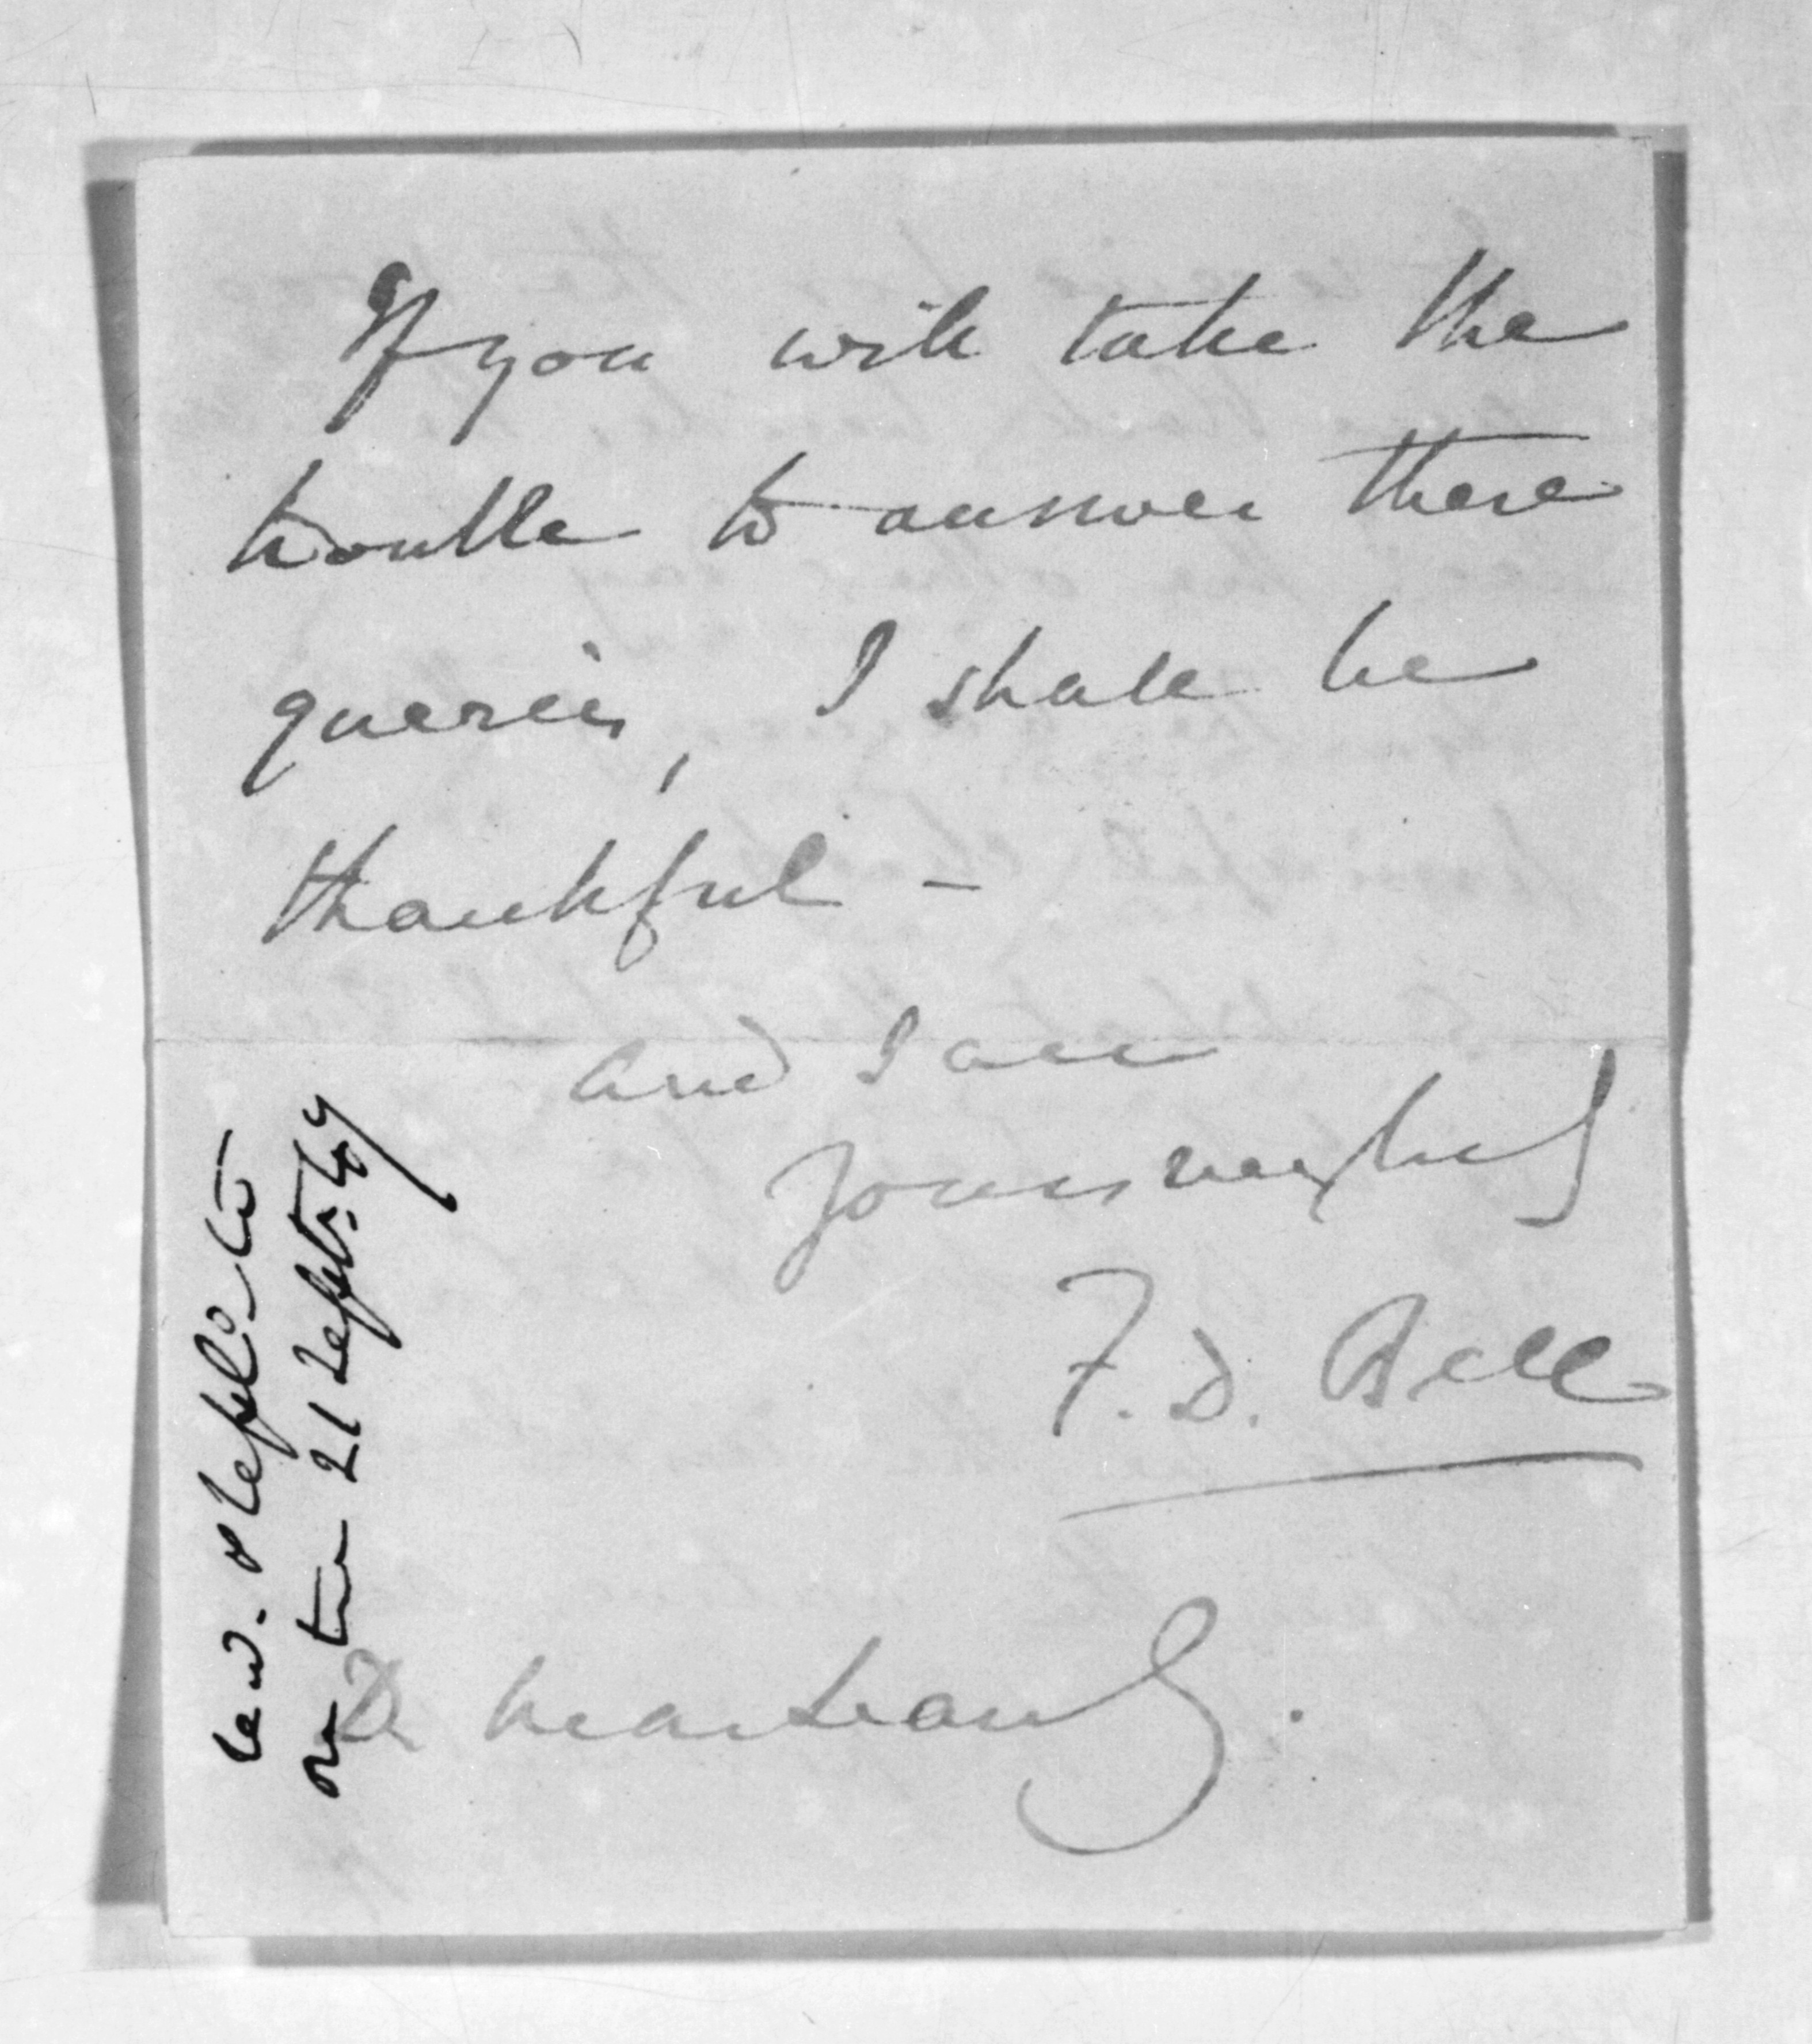 If you will take the
trouble to answer these
queries, I shall be
thankful –
and I am
Yours very truly
F. D. Bell
D. McLean Esq.
recd. & repld. to
on the 21 Septr. 49